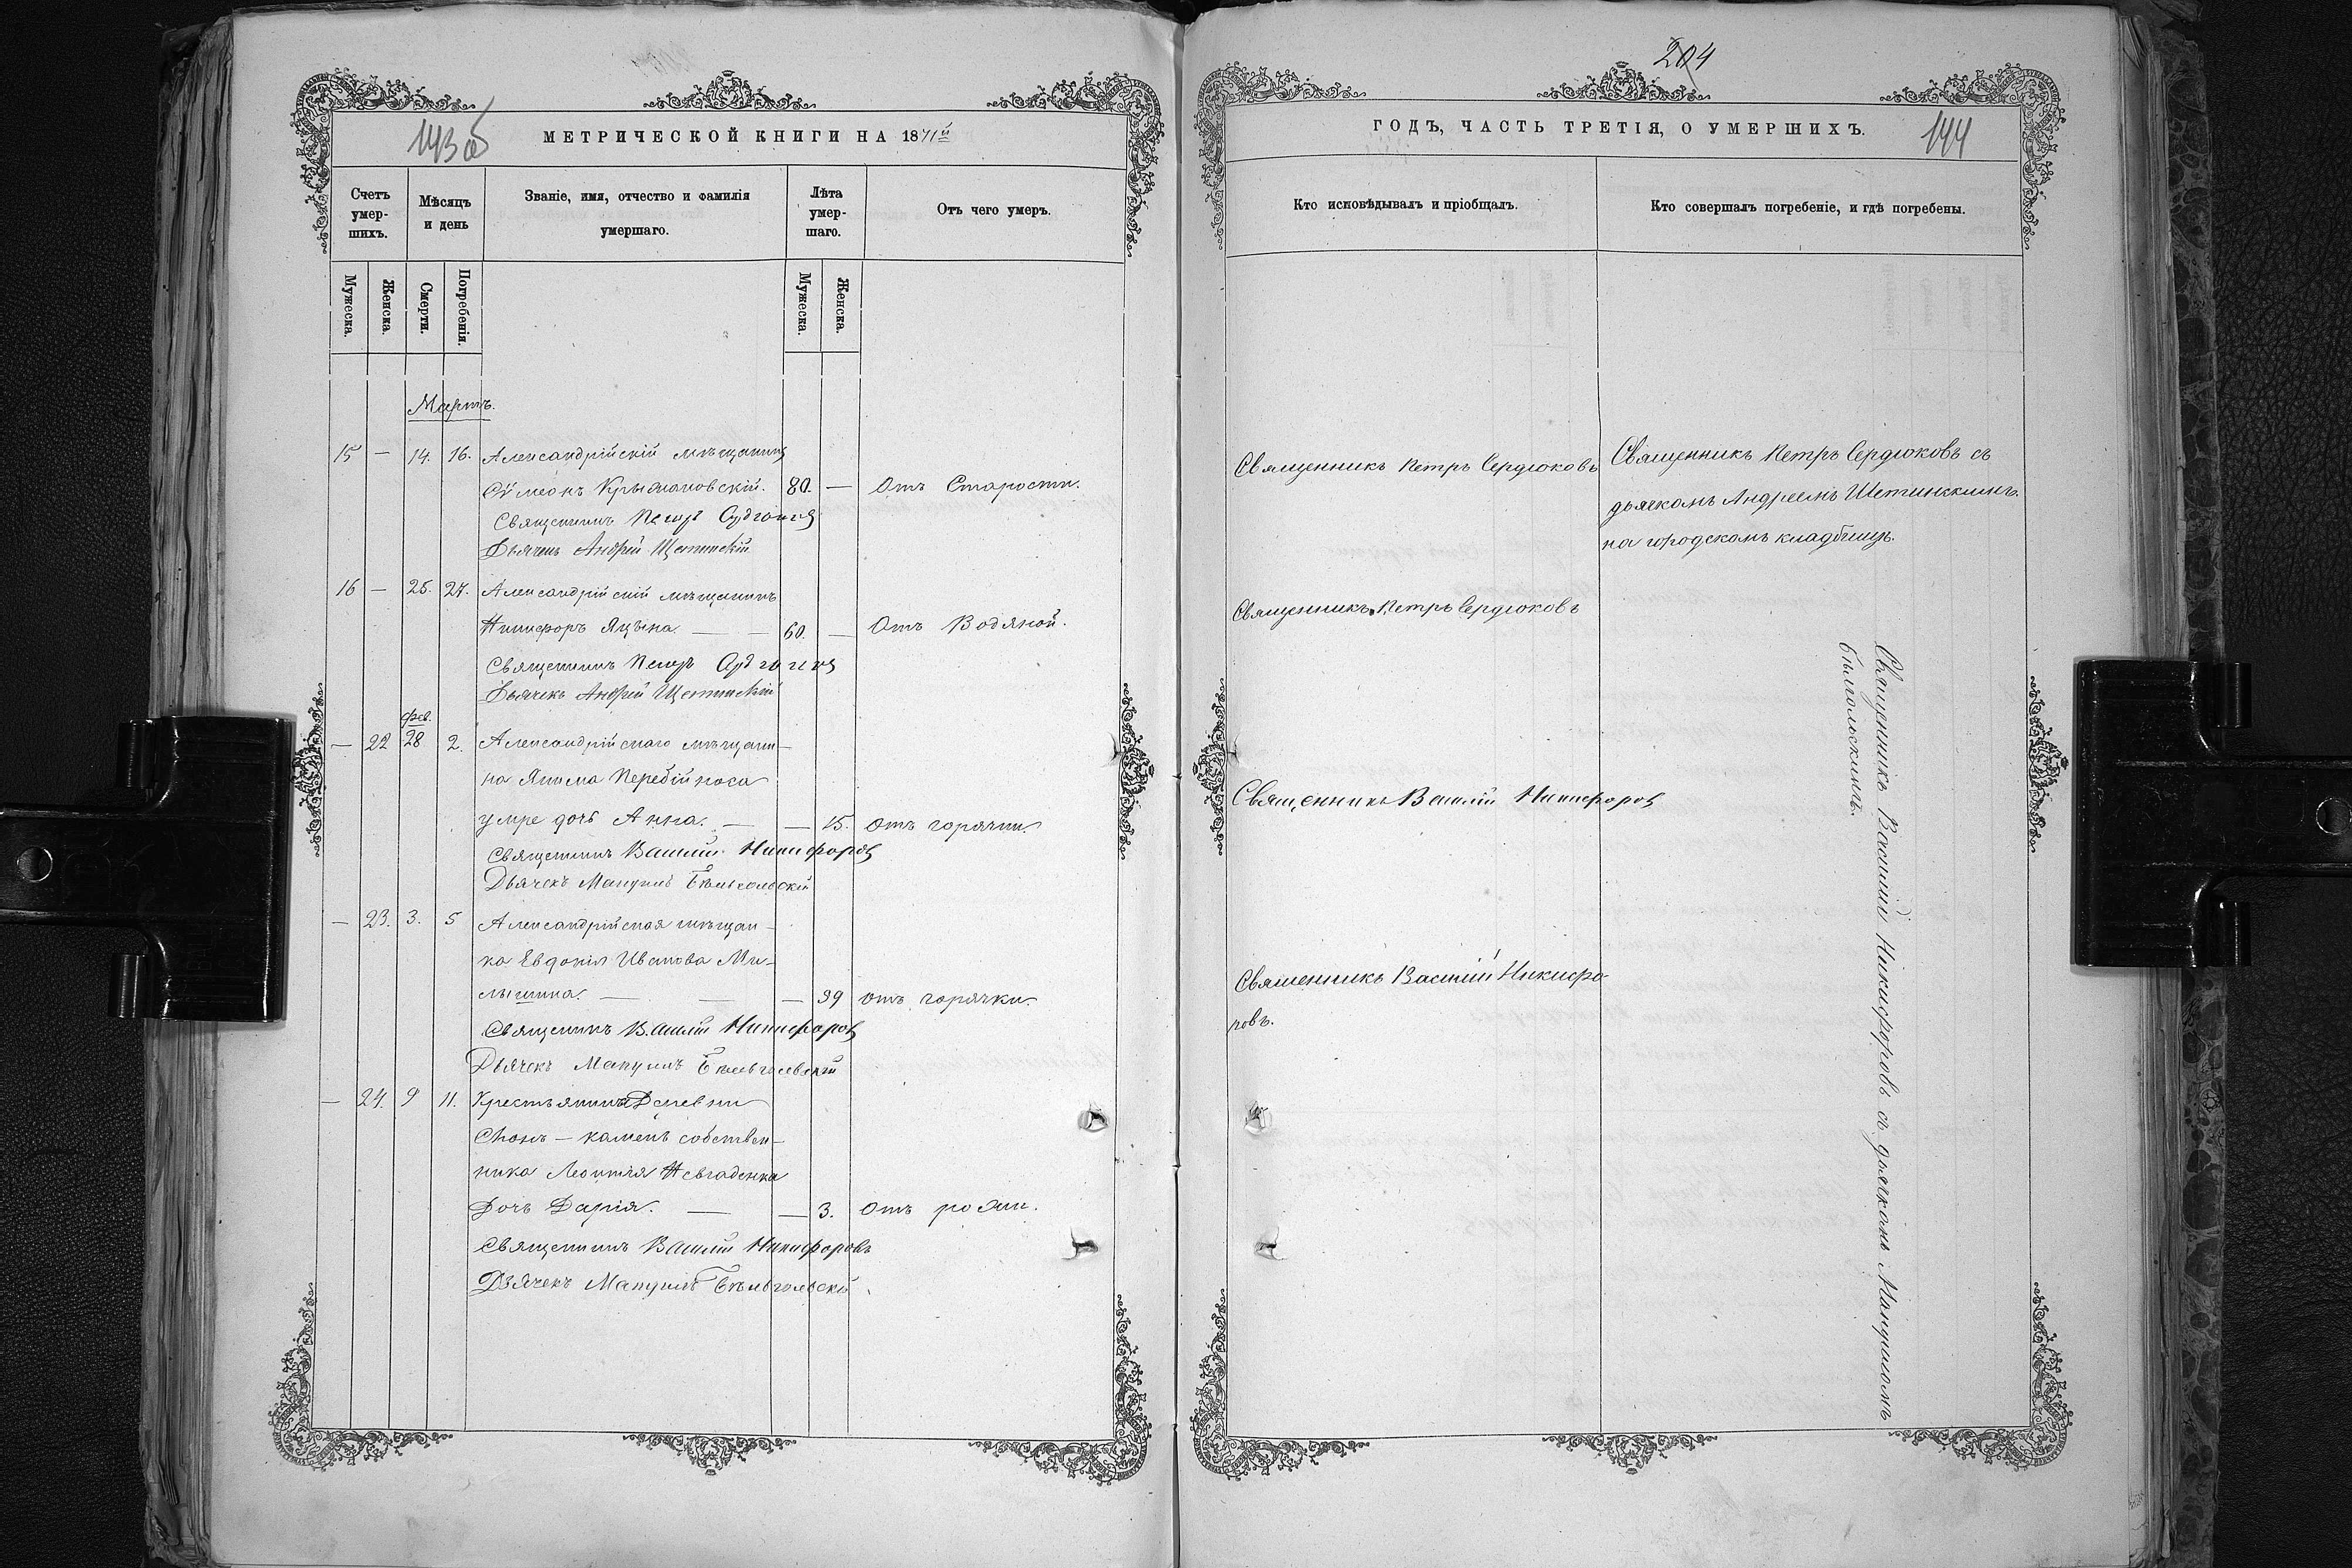 143 об
МЕТРИЧЕСКОЙ КНИГИ НА 1871й
Счетъ умер-шихъ.
Мѣсяцъ и день
Званіе, имя, отчество и фамилія умершаго.
Лѣта умер-шаго.
Отъ чего умеръ.
Мужеска.
Женска.
Смерти.
Погребенія.
Мужеска.
Женска.
Мартъ.
15 — 14. 16. Александрійскій мѣщанинъ
Сѵмеонъ Крыжановскій. 80. — Отъ Старости.
Священникъ Петръ Сердюковъ
Дьячекъ Андрей Щетинскій
16 — 25. 27. Александрійскій мѣщанинъ
Никифоръ Яцына — — 60. — Отъ Водяной.
Священникъ Петръ Сердюковъ
Дьячекъ Андрей Щетинскій
фев.
— 22 28 2. Александрійскаго мѣщани-
на Якима Перебійноса
умре дочь Анна. — — 15. отъ горячки.
Священникъ Василій Никифоровъ
Дьячекъ Мануилъ Бѣлогольскій
— 23. 3. 5 Александрійская мѣщан-
ка Евдокія Иванова Ми-
— — — 39 отъ горячки.
Священникъ Василій Никифоровъ
Дьячекъ Мануилъ Бѣлогольскій
— 24. 9 11. Крестьянина Деревни
— камень собствен-
ника Леонтія
Дочь Дарія. — — 3. Отъ
Священникъ Василій Никифоровъ
Дьячекъ Мануилъ Бѣлогольскій
204
ГОДЪ, ЧАСТЬ ТРЕТІЯ, О УМЕРШИХЪ.
144
Кто исповѣдывалъ и пріобщалъ.
Кто совершалъ погребеніе, и гдѣ погребены.
Священникъ Петръ Сердюковъ
Священникъ Петръ Сердюковъ съ
дьячкомъ Андреемъ Щетинскимъ.
на городскомъ кладбищѣ.
Священникъ Петръ Сердюковъ
Священникъ Василій Никифоровъ
Священникъ Василій Никифо-
ровъ.
Священникъ Василій Никифоровъ съ дьячкомъ Мануиломъ
Бѣлогольскимъ.